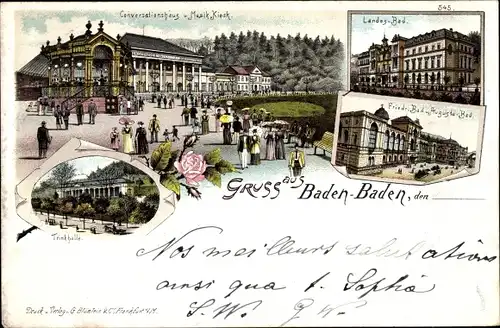 545.
Conversationshaus u. Musik Kiosk.
Landes-Bad.
Friedr.-Bad u. Augusta-Bad.
Trinkhalle.
Gruss aus Baden-Baden, den
Nos meilleurs salutations
ainsi que t. Sophia
S. W. G W.
Druck u. Verlag v. G. Blümlein & Co. Frankfurt a/M.